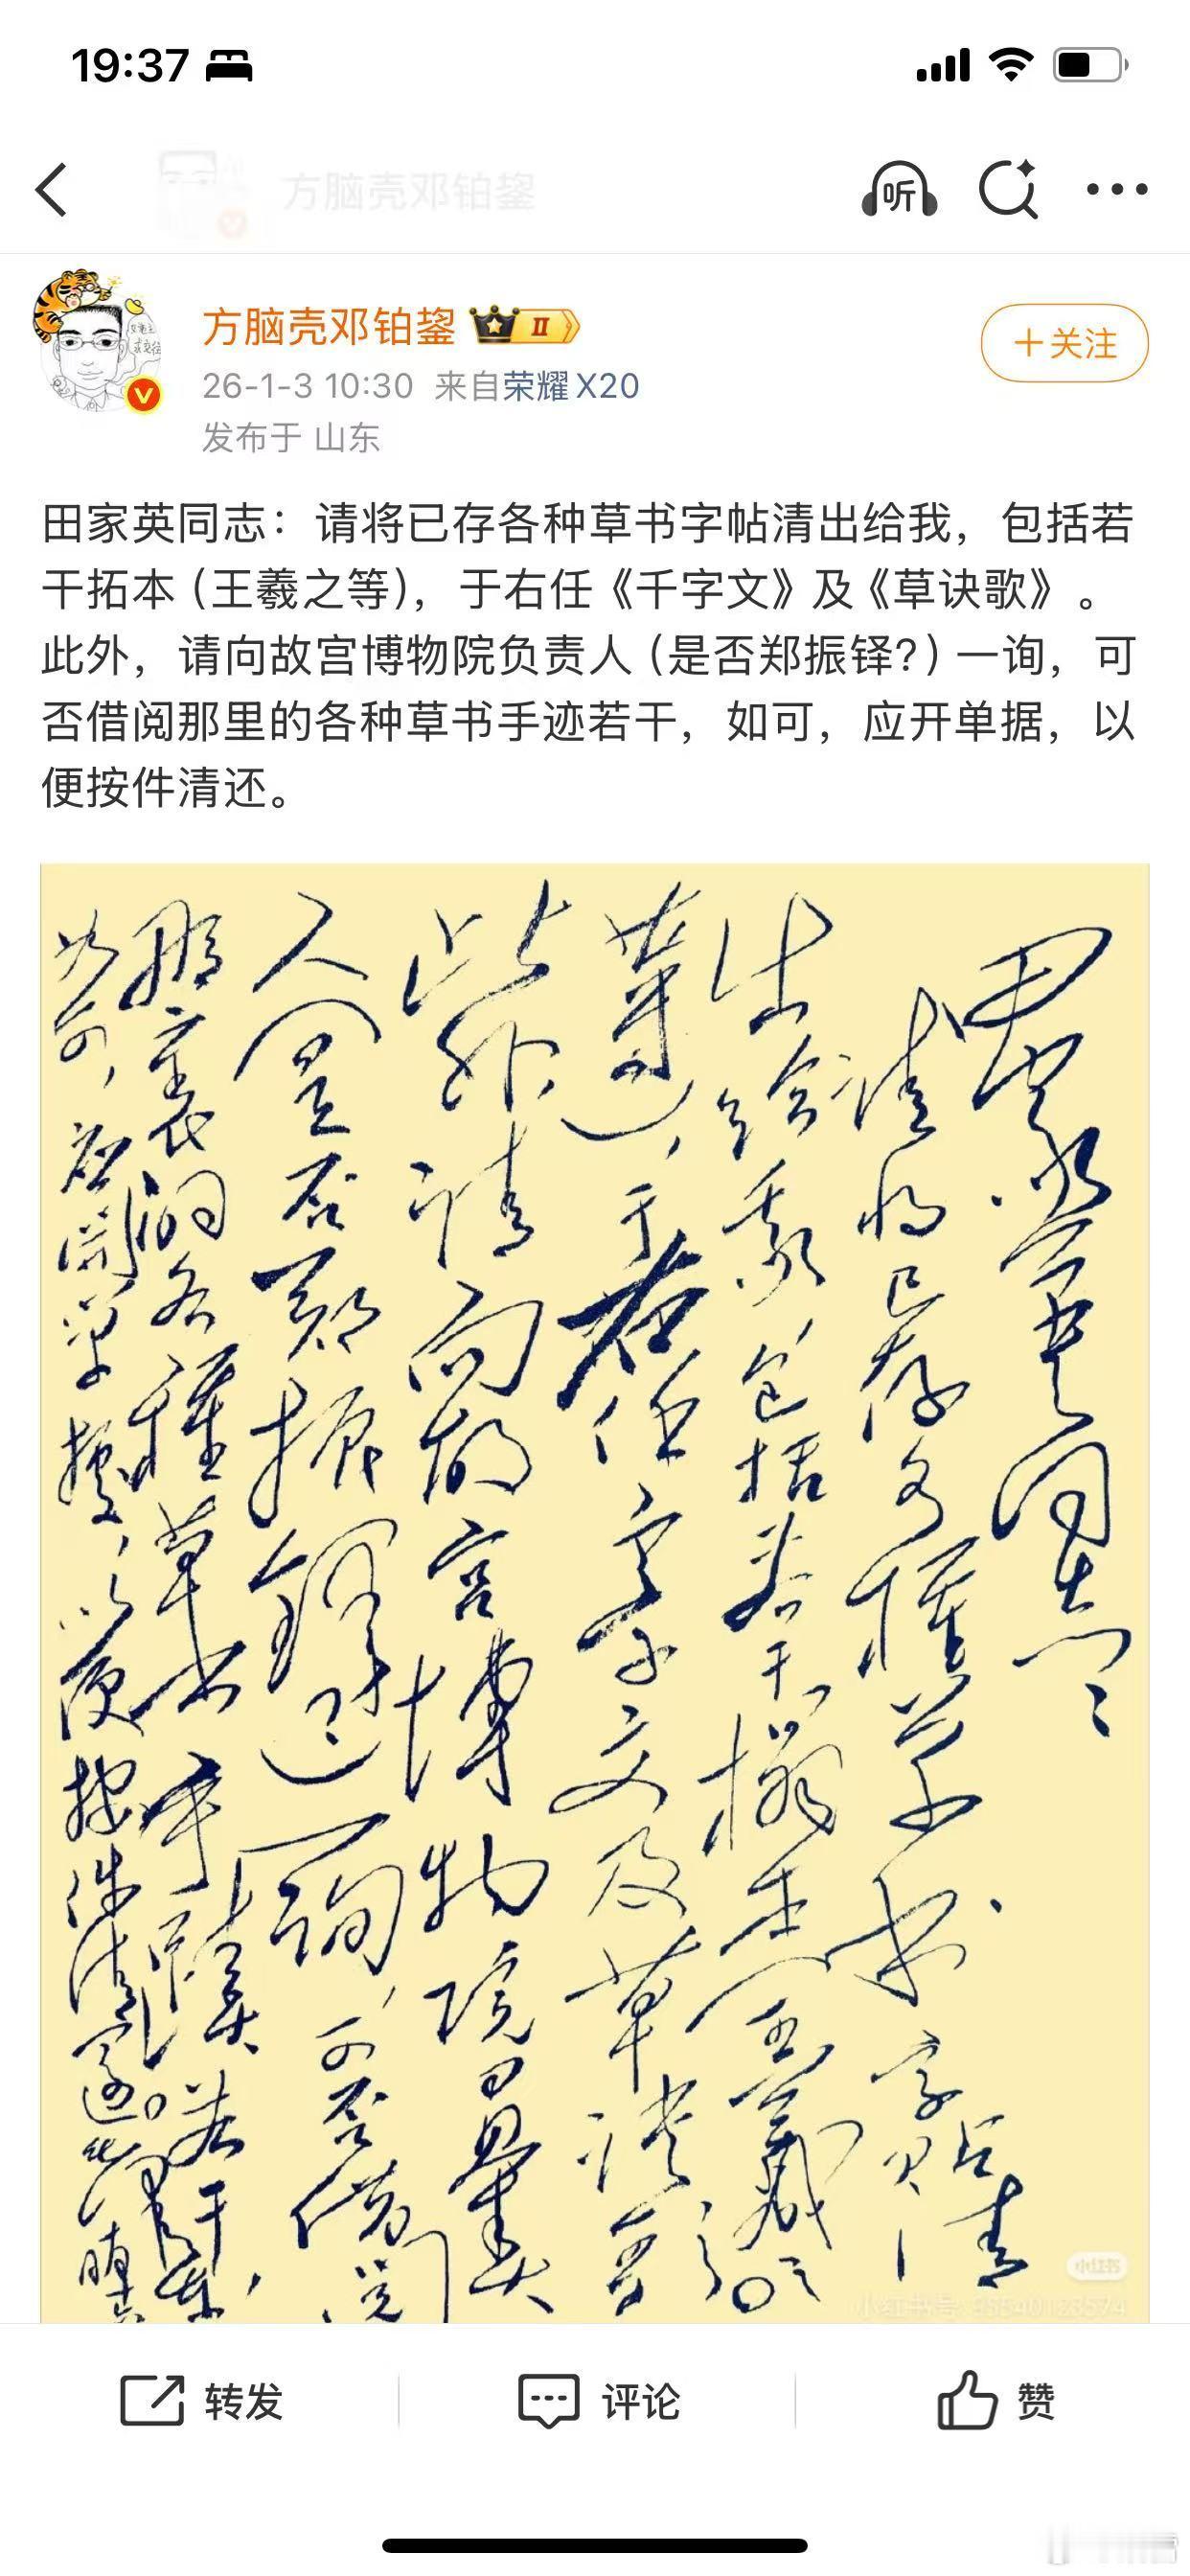 19:37
方脑壳邓铂鋆
听
方脑壳邓铂鋆 II
26-1-3 10:30 来自荣耀X20
发布于 山东
+关注
田家英同志：请将已存各种草书字帖清出给我，包括若
干拓本（王羲之等），于右任《千字文》及《草诀歌》。
此外，请向故宫博物院负责人（是否郑振铎？）一询，可
否借阅那里的各种草书手迹若干，如可，应开单据，以
便按件清还。
田家英同志：
请将已存各种草书字帖清
出给我，包括若干拓本（王羲之
等），于右任千字文及草诀歌。
此外，请向故宫博物院负责
人（是否郑振铎？）一询，可否借阅
那里的各种草书手迹若干，
如可，应开单据，以便按件清还。
小红书
转发
评论
赞